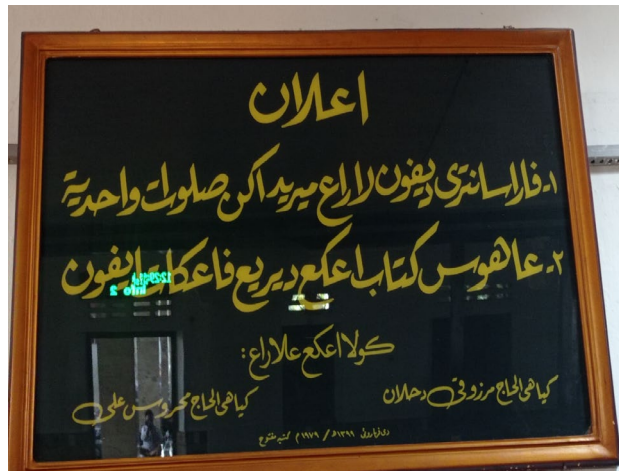 اعلان
١- فارا سانتري ديفون لاراغ ميريداكن صلوات واحدية
٢- عاهوس كتاب اعكع ديريع فاعكات ايفون
كولا اعكع علاراغ :
كياهى الحاج مرزوقى دحلان
كياهى الحاج محروس على
١٣٩٩ھ / ١٩٧٩م